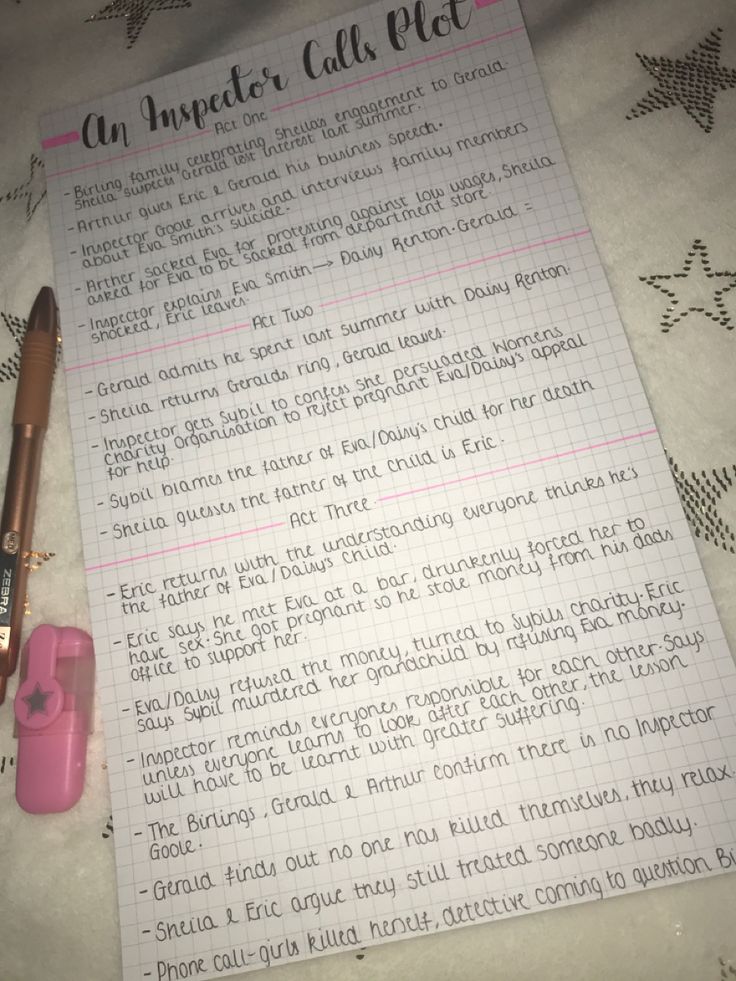 An Inspector Calls Plot
Act One
- Birling family celebrating Sheilas engagement to Gerald.
Sheila suspects Gerald lost interest last summer.
- Arthur gives Eric & Gerald his business speech.
- Inspector Goole arrives and interviews family members
about Eva Smith's suicide.
- Arther sacked Eva for protesting against low wages, Sheila
asked for Eva to be sacked from department store.
- Inspector explains Eva Smith → Daisy Renton. Gerald =
shocked, Eric leaves.
Act Two
- Gerald admits he spent last summer with Daisy Renton.
- Sheila returns Geralds ring, Gerald leaves.
- Inspector gets Sybil to confess she persuaded Womens
charity Organisation to reject pregnant Eva/Daisy's appeal
for help.
- Sybil blames the father of Eva/Daisy's child for her death
- Sheila guesses the father of the child is Eric.
Act Three
- Eric returns with the understanding everyone thinks he's
the father of Eva/Daisy's child.
- Eric says he met Eva at a bar, drunkenly forced her to
have sex. She got pregnant so he stole money from his dads
office to support her.
- Eva/Daisy refused the money, turned to Sybils charity. Eric
says Sybil murdered her grandchild by refusing Eva money.
- Inspector reminds everyones responsible for each other. Says
unless everyone learns to look after each other, the lesson
will have to be learnt with greater suffering.
- The Birlings, Gerald & Arthur confirm there is no Inspector
Goole.
- Gerald finds out no one has killed themselves, they relax.
- Sheila & Eric argue they still treated someone badly.
- Phone call - girls killed herself, detective coming to question Bi
ZEBRA